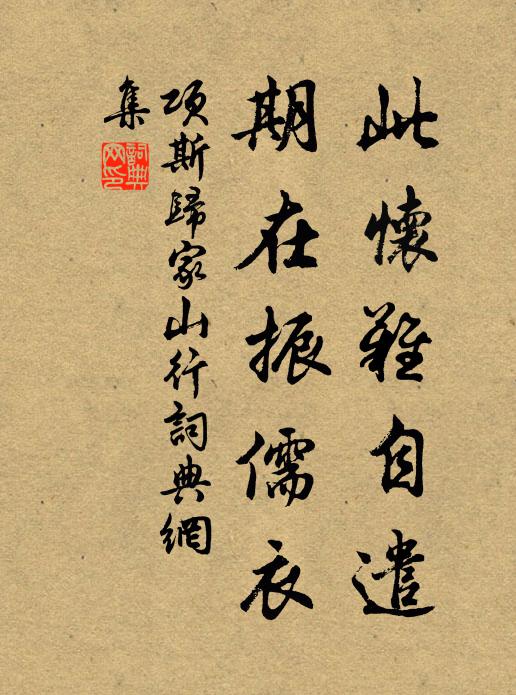 此懷難自遣
期在振儒衣
項斯歸家山行詞典網
集
詞典
網印